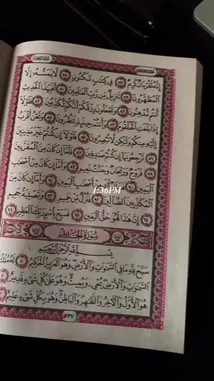 إِنَّهُ لَقُرْءَانٌ كَرِيمٌ ٧٧ فِي كِتَابٍ مَكْنُونٍ ٧٨ لَا يَمَسُّهُ إِلَّا
الْمُطَهَّرُونَ ٧٩ تَنزِيلٌ مِنْ رَبِّ الْعَالَمِينَ ٨٠ أَفَبِهَذَا الْحَدِيثِ
أَنْتُمْ مُدْهِنُونَ ٨١ وَتَجْعَلُونَ رِزْقَكُمْ أَنَّكُمْ تُكَذِّبُونَ ٨٢ فَلَوْلَا
إِذَا بَلَغَتِ الْحُلْقُومَ ٨٣ وَأَنْتُمْ حِينَئِذٍ تَنْظُرُونَ ٨٤ وَنَحْنُ أَقْرَبُ
إِلَيْهِ مِنْكُمْ وَلَكِنْ لَا تُبْصِرُونَ ٨٥ فَلَوْلَا إِنْ كُنْتُمْ غَيْرَ مَدِينِينَ
٨٦ تَرْجِعُونَهَا إِنْ كُنْتُمْ صَادِقِينَ ٨٧ فَأَمَّا إِنْ كَانَ مِنَ الْمُقَرَّبِينَ
٨٨ فَرَوْحٌ وَرَيْحَانٌ وَجَنَّتُ نَعِيمٍ ٨٩ وَأَمَّا إِنْ كَانَ مِنْ أَصْحَابِ
الْيَمِينِ ٩٠ فَسَلَامٌ لَكَ مِنْ أَصْحَابِ الْيَمِينِ ٩١ وَأَمَّا إِنْ كَانَ
1:36PM
مِنَ الْمُكَذِّبِينَ الضَّالِّينَ ٩٢ فَنُزُلٌ مِنْ حَمِيمٍ ٩٣ وَتَصْلِيَةُ جَحِيمٍ
٩٤ إِنَّ هَذَا لَهُوَ حَقُّ الْيَقِينِ ٩٥ فَسَبِّحْ بِاسْمِ رَبِّكَ الْعَظِيمِ ٩٦
سُورَةُ الْحَدِيدِ
بِسْمِ اللَّهِ الرَّحْمَنِ الرَّحِيمِ
سَبَّحَ لِلَّهِ مَا فِي السَّمَاوَاتِ وَالْأَرْضِ وَهُوَ الْعَزِيزُ الْحَكِيمُ ١ لَهُ مُلْكُ
السَّمَاوَاتِ وَالْأَرْضِ يُحْيِي وَيُمِيتُ وَهُوَ عَلَى كُلِّ شَيْءٍ قَدِيرٌ ٢
هُوَ الْأَوَّلُ وَالْآخِرُ وَالظَّاهِرُ وَالْبَاطِنُ وَهُوَ بِكُلِّ شَيْءٍ عَلِيمٌ ٣
٥٣٧